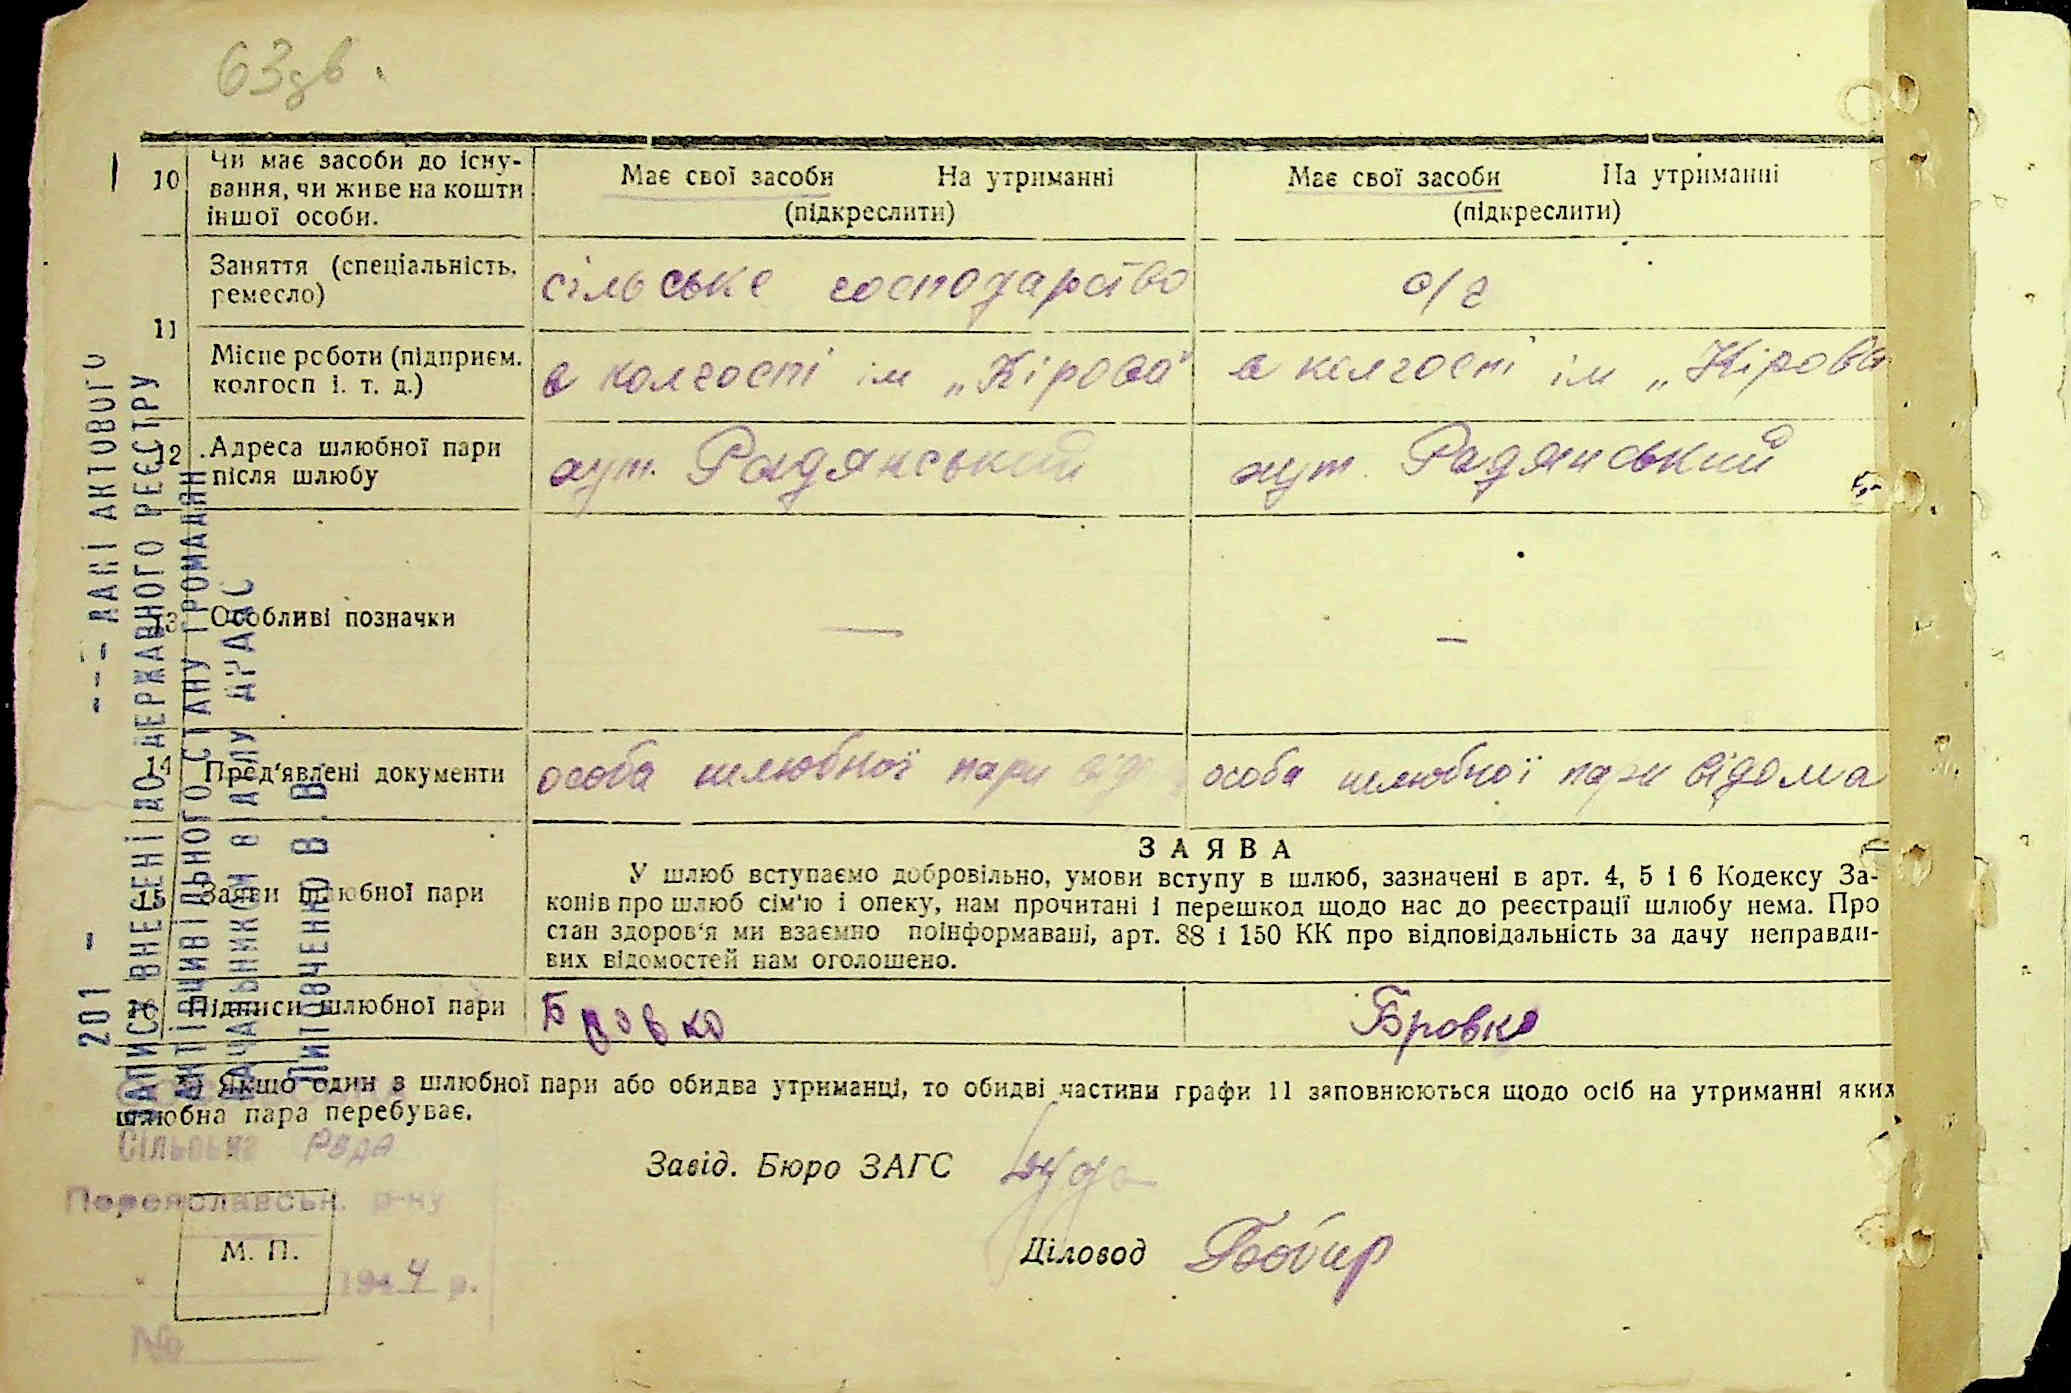 63зв.
10 Чи має засоби до існу-
вання, чи живе на кошти
іншої особи.
Має свої засоби На утриманні
(підкреслити)
Має свої засоби На утриманні
(підкреслити)
11
Заняття (спеціальність,
ремесло)
сільське господарство
с/г
Місце роботи (підприєм.
колгосп і. т. д.)
в колгоспі ім „Кірова"
в колгоспі ім „Кірова
12 Адреса шлюбної пари
після шлюбу
хут. Радянський
хут. Радянський
13 Особливі позначки
—
—
14 Пред'явлені документи
особа шлюбної пари
особа шлюбної пари відома
15 Заяви шлюбної пари
ЗАЯВА
У шлюб вступаємо добровільно, умови вступу в шлюб, зазначені в арт. 4, 5 і 6 Кодексу За-
конів про шлюб сім'ю і опеку, нам прочитані і перешкод щодо нас до реєстрації шлюбу нема. Про
стан здоров'я ми взаємно поінформавані, арт. 88 і 150 КК про відповідальність за дачу неправди-
вих відомостей нам оголошено.
16 Підписи шлюбної пари
Бровко
Бровко
Якщо один з шлюбної пари або обидва утриманці, то обидві частини графи 11 заповнюються щодо осіб на утриманні яких
шлюбна пара перебуває.
Завід. Бюро ЗАГС
Діловод
Сільська Рада
Переяславськ. р-ну
М. П.
1944 р.
№
201 - АКТОВОГО
ЗАПИСУ ВНЕСЕНІ ДО ДЕРЖАВНОГО РЕЄСТРУ
АКТІВ ЦИВІЛЬНОГО СТАНУ ГРОМАДЯН
НАЧАЛЬНИКОМ ВІДДІЛУ ДРАЦС